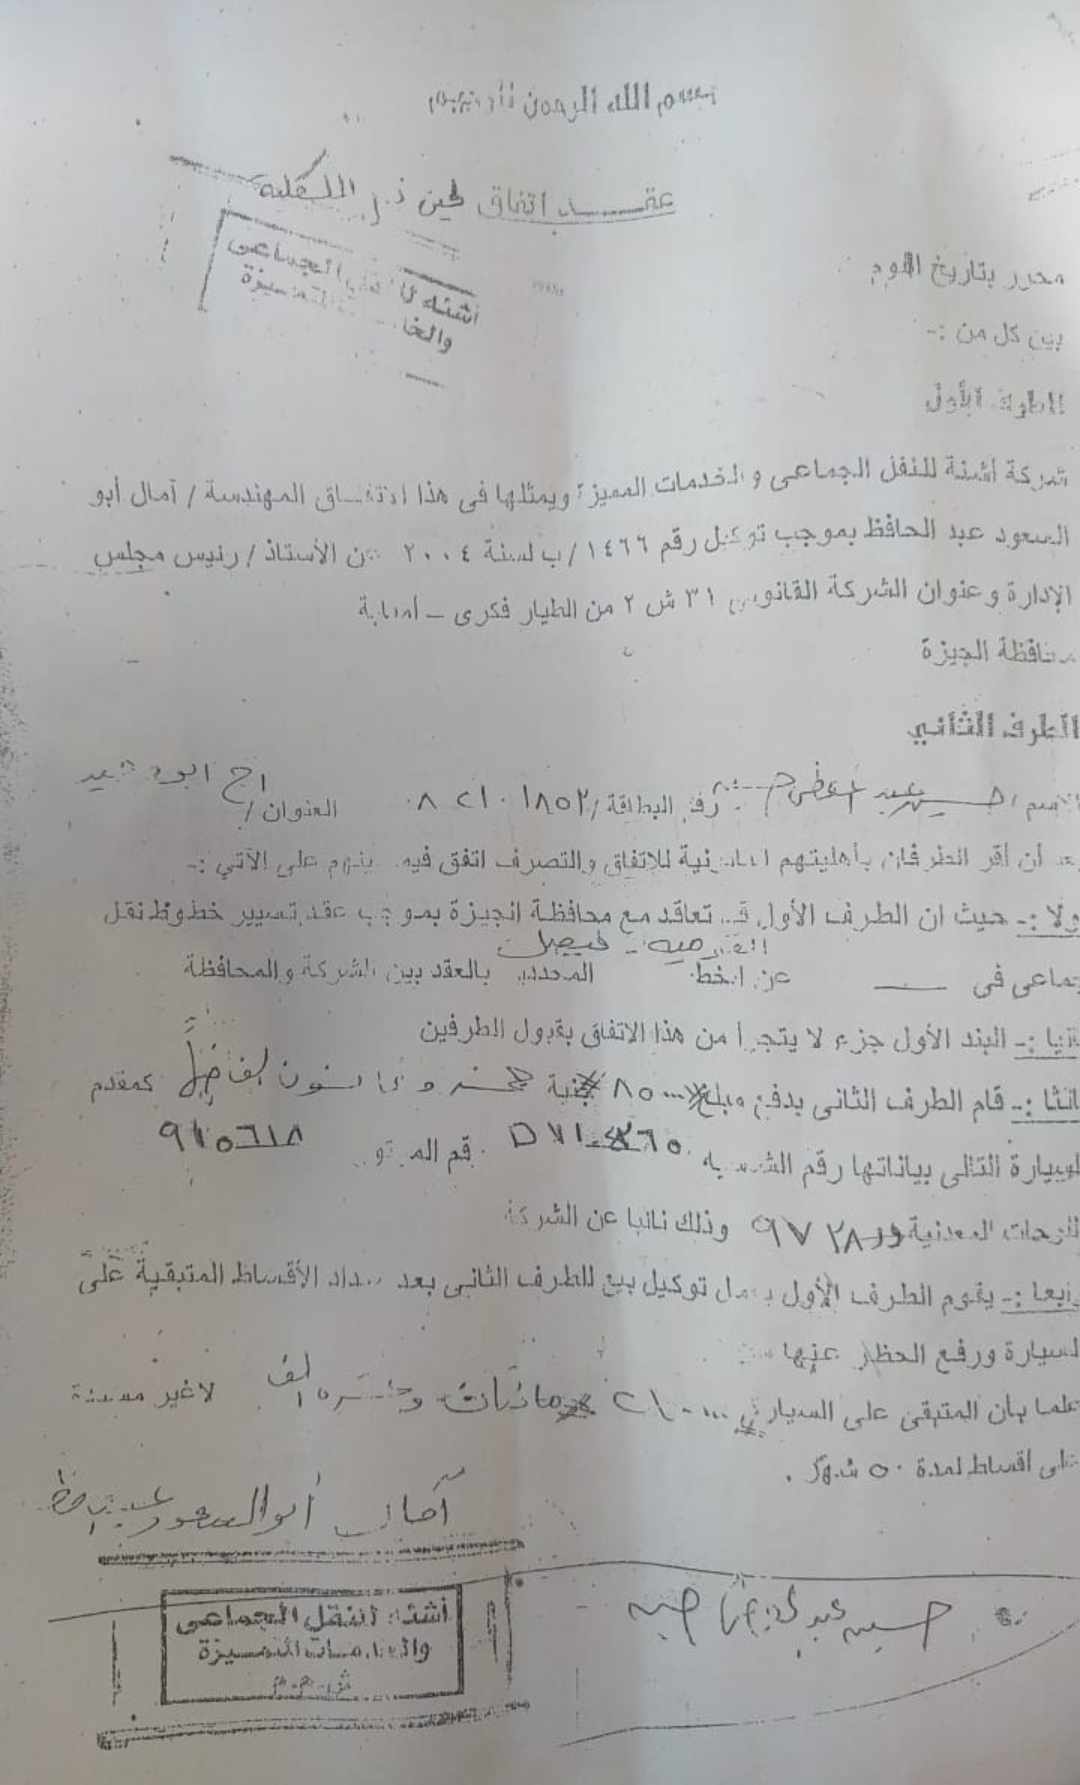 بسم الله الرحمن الرحيم
عقد اتفاق لحين نقل الملكية
أشنه للنقل الجماعى
والخدمات المتميزة
محرر بتاريخ اليوم
بين كل من :-
الطرف الأول
شركة أشنة للنقل الجماعى والخدمات المميزة ويمثلها فى هذا الاتفاق المهندسة / آمال أبو
السعود عبد الحافظ بموجب توكيل رقم ١٤٦٦ /ب لسنة ٢٠٠٤ عن الأستاذ / رئيس مجلس
الإدارة وعنوان الشركة القانونى ٣١ ش ٢ من الطيار فكرى – أمبابة
محافظة الجيزة
الطرف الثانى
الاسم / حسين عبد رقم البطاقة / العنوان /
بعد أن أقر الطرفان بأهليتهم القانونية للاتفاق والتصرف اتفق فيما بينهم على الآتي :-
اولا :- حيث ان الطرف الأول قد تعاقد مع محافظة الجيزة بموجب عقد تسيير خطوط نقل
فيصل
جماعى فى عن الخط المحدد بالعقد بين الشركة والمحافظة
ثانيا :- البند الأول جزء لا يتجزأ من هذا الاتفاق بقبول الطرفين
ثالثا :- قام الطرف الثانى بدفع مبلغ ٨٥٠٠٠ جنية خمسة وثمانون كمقدم
للسيارة التالى بياناتها رقم الشاسيه رقم الموتور ٩١٥٦١٨
اللوحات المعدنية ٩٧٢٨٨ وذلك نائبا عن الشركة
رابعا :- يقوم الطرف الأول بعمل توكيل بيع للطرف الثانى بعد سداد الأقساط المتبقية على
السيارة ورفع الحظر عنها
علما بان المتبقى على السيارة ٢١٠٠٠٠ مائتان وعشرة الف لا غير مسددة
على اقساط لمدة ٥٠ شهر .
آمال أبو السعود عبد الحافظ
حسين عبد
أشنة للنقل الجماعى
والخدمات المتميزة
ش.م.م